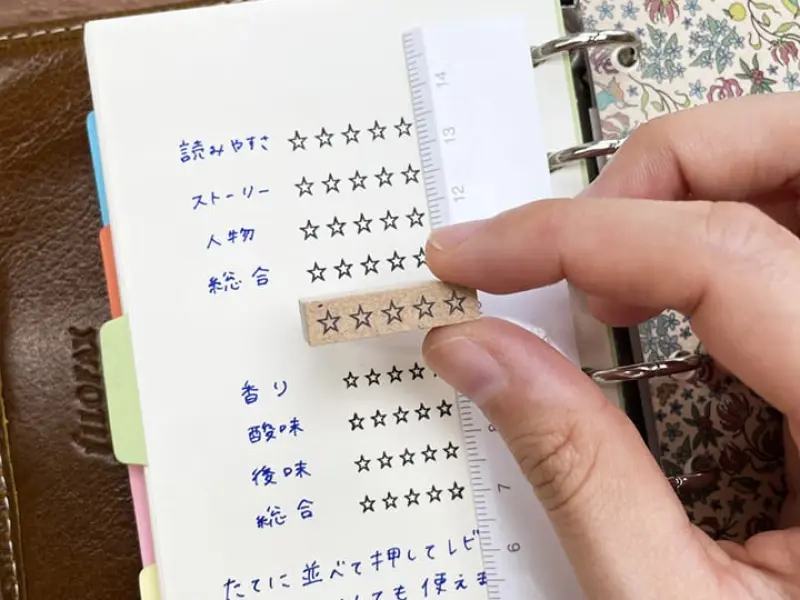 読みやすさ ☆☆☆☆☆
ストーリー ☆☆☆☆☆
人物 ☆☆☆☆☆
総合 ☆☆☆☆☆
☆☆☆☆☆
香り ☆☆☆☆
酸味 ☆☆☆☆☆
後味 ☆☆☆☆☆
総合 ☆☆☆☆☆
たてに並べて押してレビ
ても使えま
14
13
12
7
6